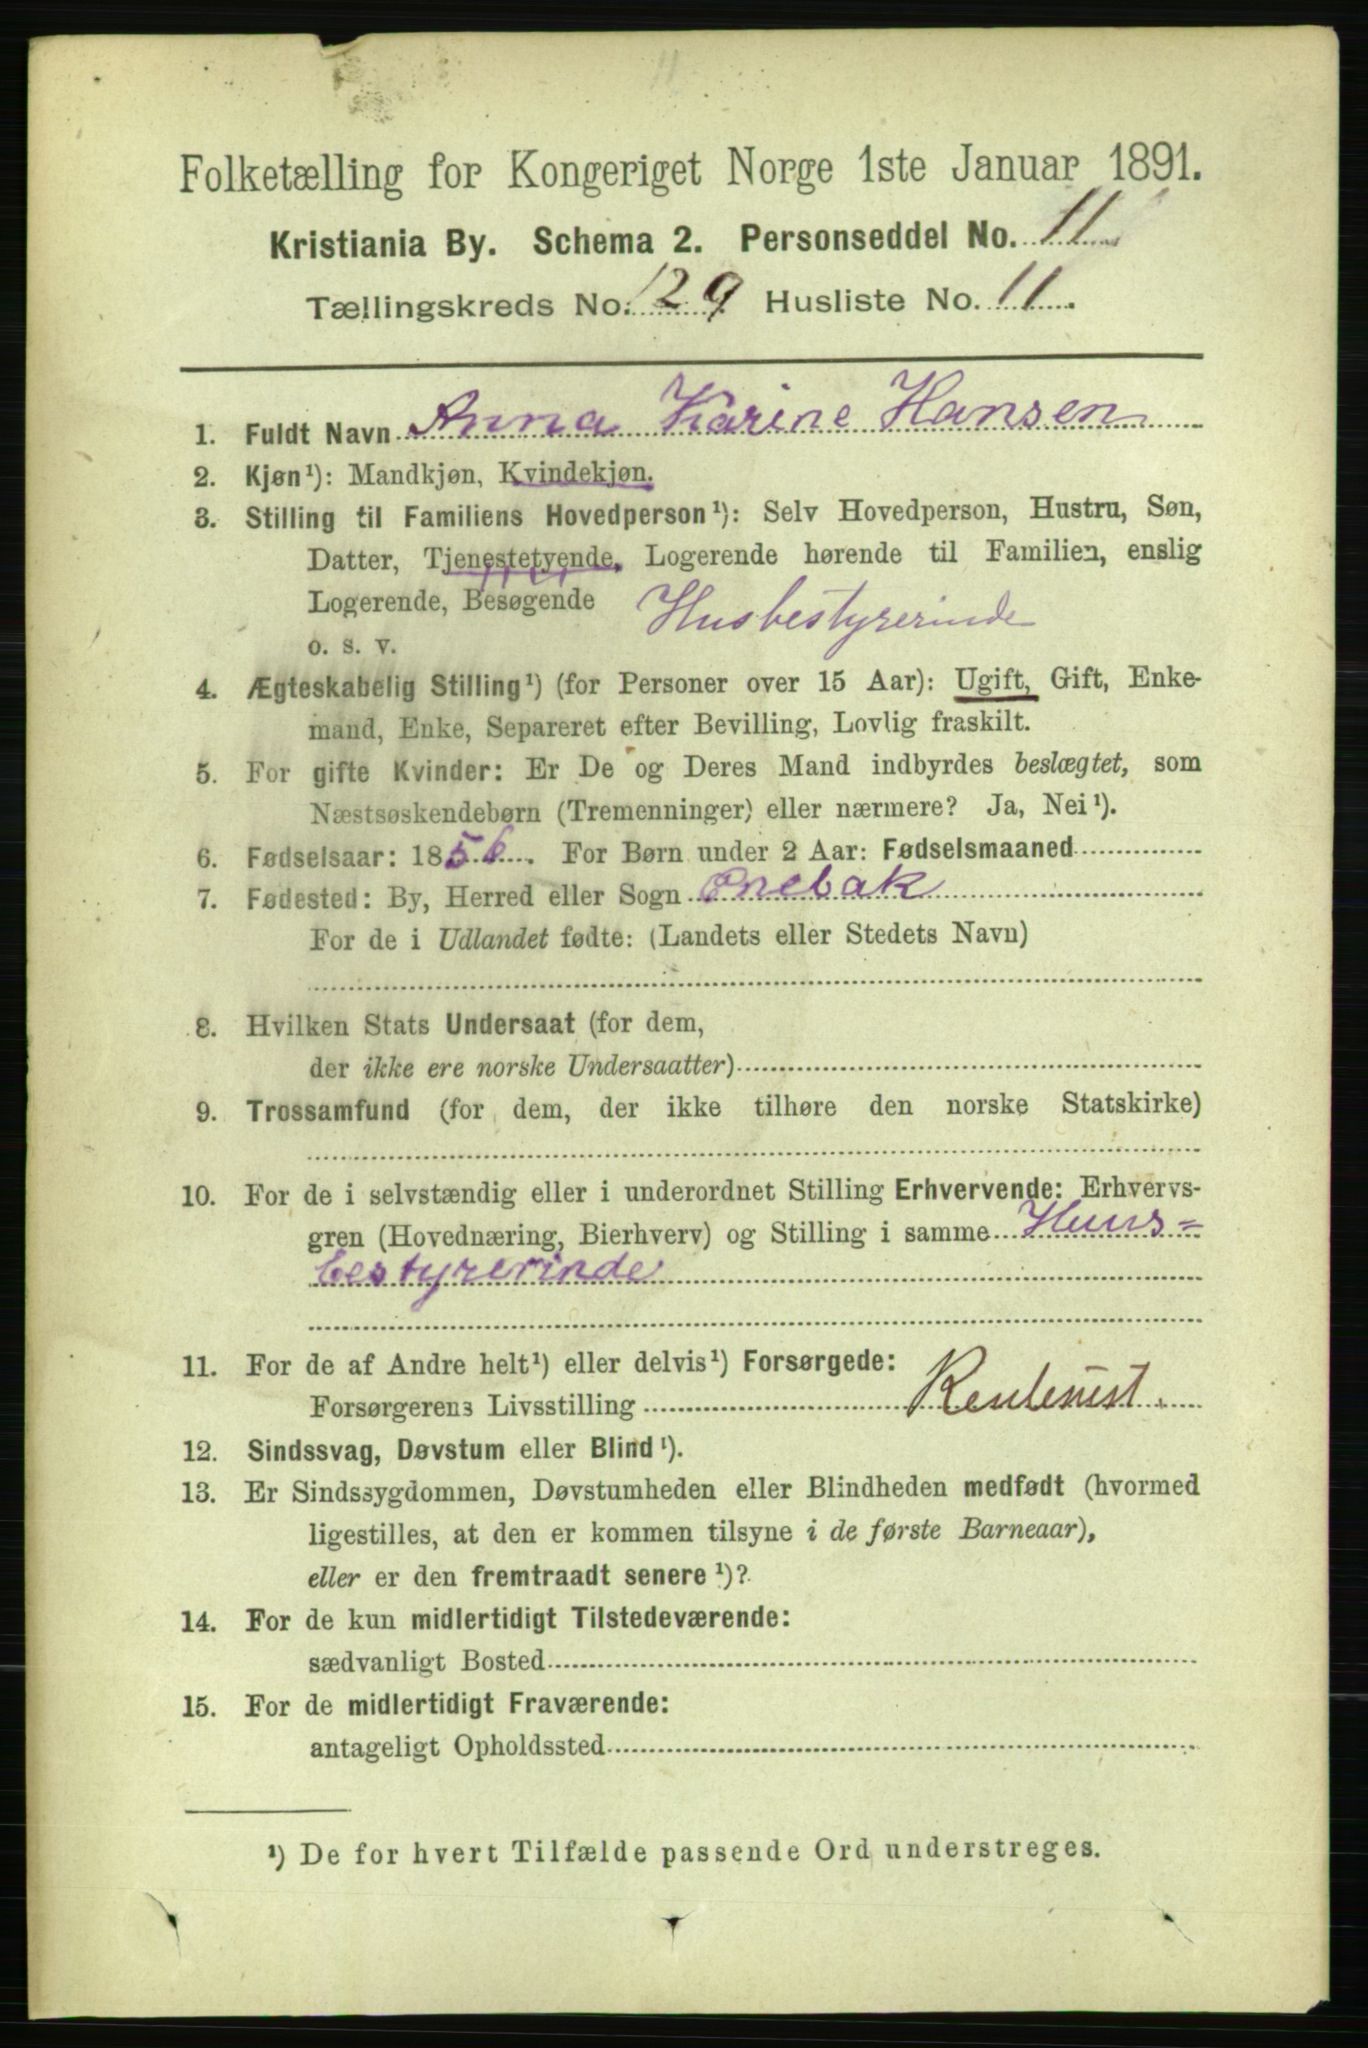 Folketælling for Kongeriget Norge 1ste Januar 1891.
Kristiania By. Schema 2. Personseddel No. 11
Tællingskreds No. 129 Husliste No. 11.
1. Fuldt Navn Anna Karine Hansen
2. Kjøn¹): Mandkjøn, Kvindekjøn.
3. Stilling til Familiens Hovedperson¹): Selv Hovedperson, Hustru, Søn,
Datter, Tjenestetyende, Logerende hørende til Familien, enslig
Logerende, Besøgende Husbestyrerinde
o. s. v.
4. Ægteskabelig Stilling¹) (for Personer over 15 Aar): Ugift, Gift, Enke-
mand, Enke, Separeret efter Bevilling, Lovlig fraskilt.
5. For gifte Kvinder: Er De og Deres Mand indbyrdes beslægtet, som
Næstsøskendebørn (Tremenninger) eller nærmere? Ja, Nei¹).
6. Fødselsaar: 1856. For Børn under 2 Aar: Fødselsmaaned
7. Fødested: By, Herred eller Sogn Enebak
For de i Udlandet fødte: (Landets eller Stedets Navn)
8. Hvilken Stats Undersaat (for dem,
der ikke ere norske Undersaatter)
9. Trossamfund (for dem, der ikke tilhøre den norske Statskirke)
10. For de i selvstændig eller i underordnet Stilling Erhvervende: Erhvervs-
gren (Hovednæring, Bierhverv) og Stilling i samme Huus=
bestyrerinde
11. For de af Andre helt¹) eller delvis¹) Forsørgede:
Forsørgerens Livsstilling Rentenist.
12. Sindssvag, Døvstum eller Blind¹).
13. Er Sindssygdommen, Døvstumheden eller Blindheden medfødt (hvormed
ligestilles, at den er kommen tilsyne i de første Barneaar),
eller er den fremtraadt senere¹)?
14. For de kun midlertidigt Tilstedeværende:
sædvanligt Bosted
15. For de midlertidigt Fraværende:
antageligt Opholdssted
¹) De for hvert Tilfælde passende Ord understreges.